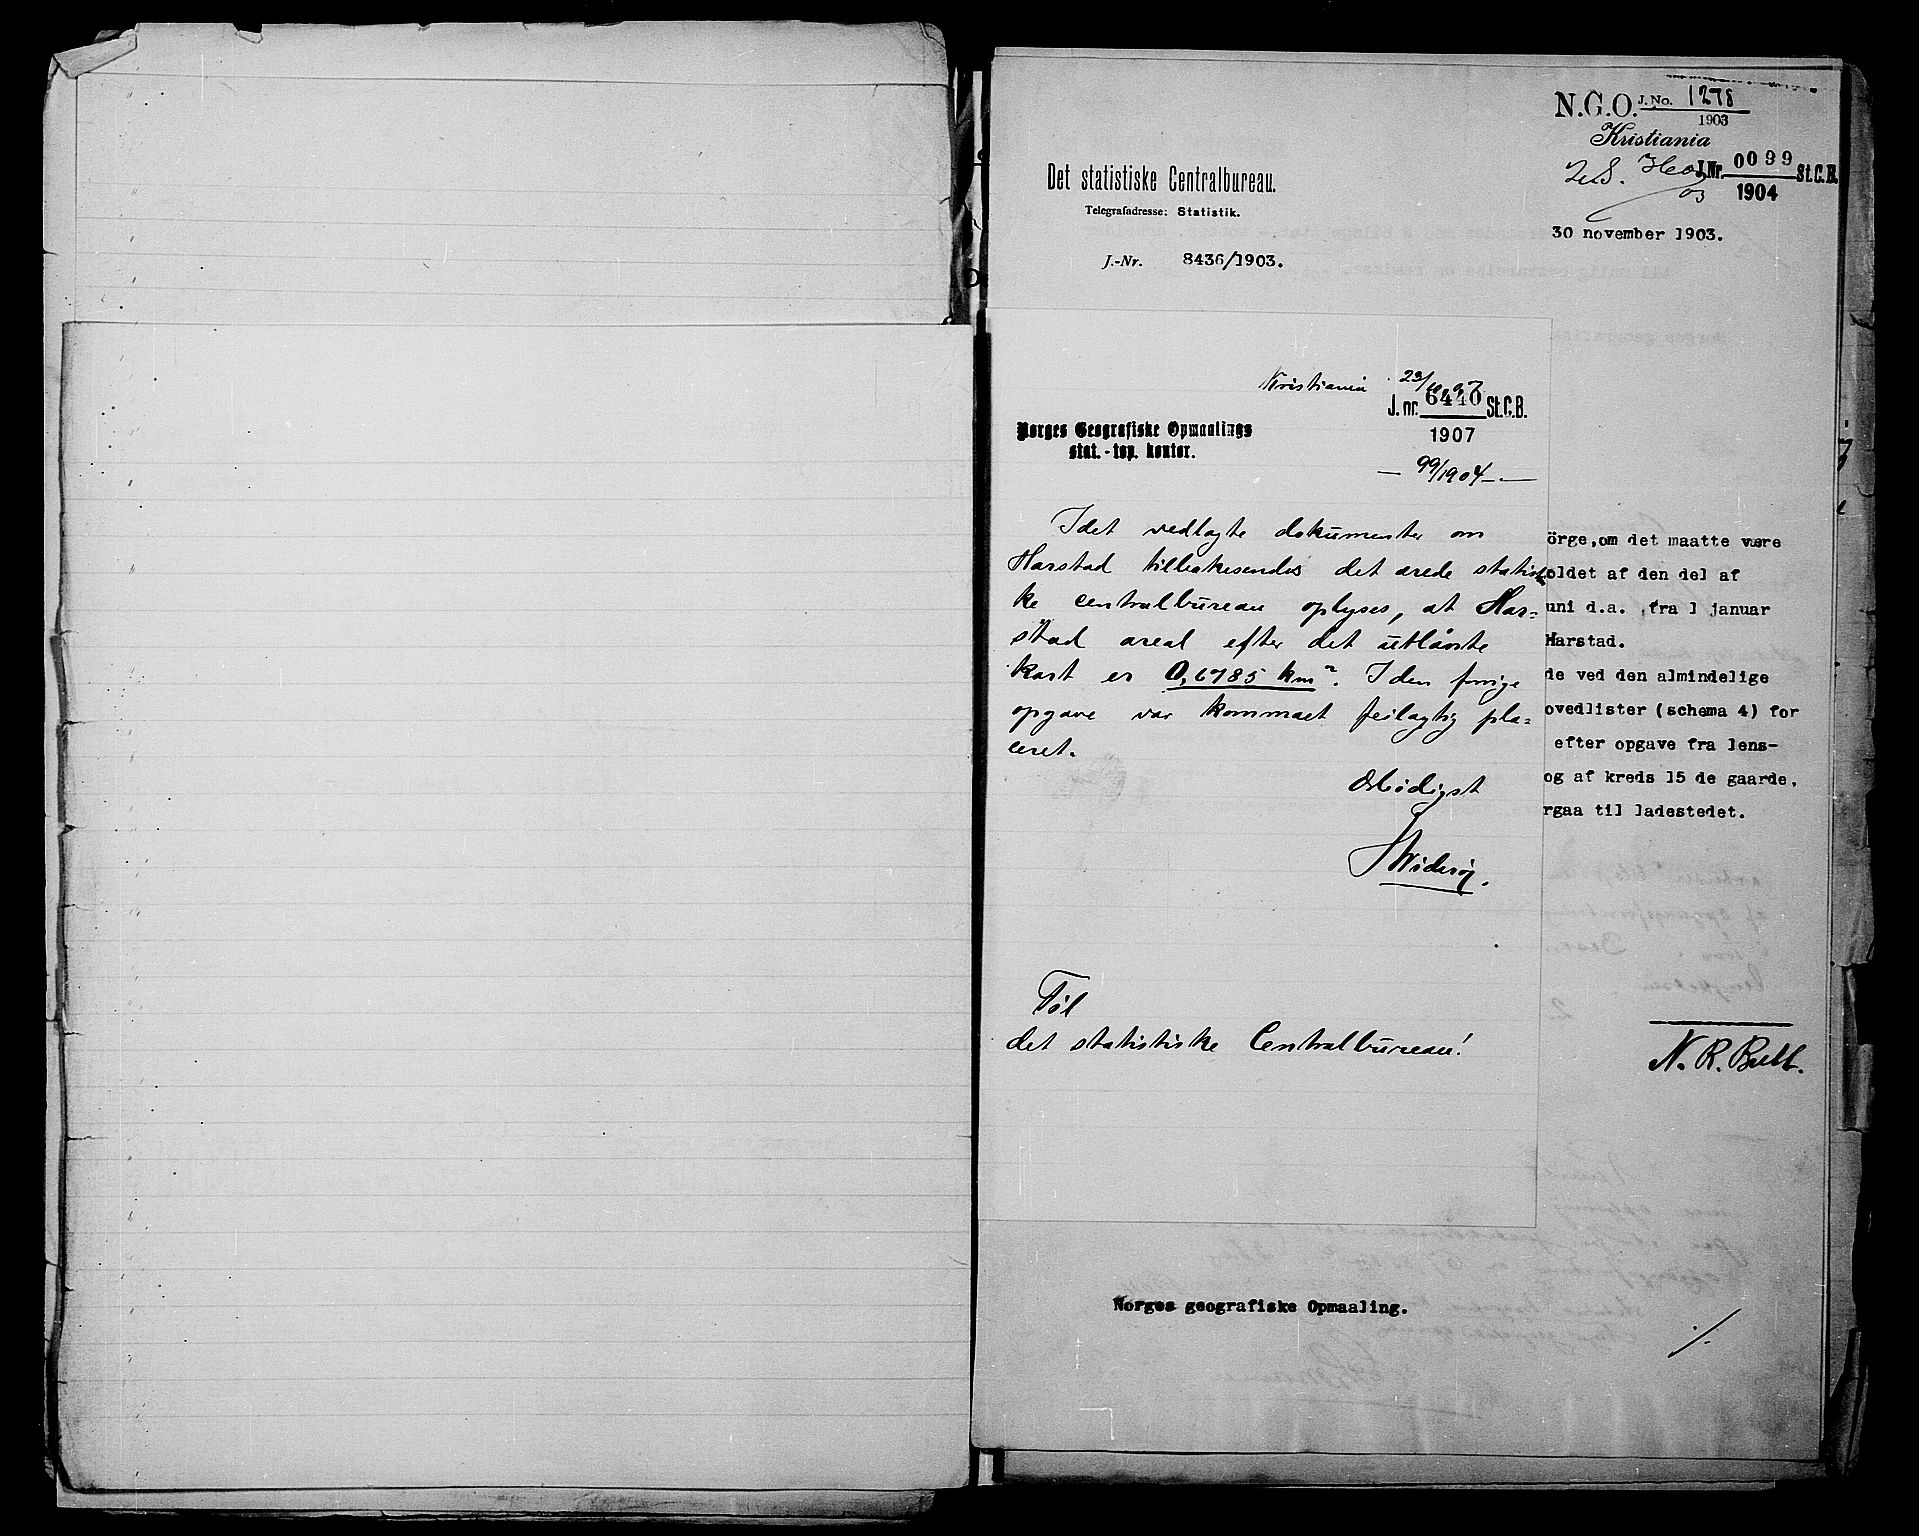 N.G.O. J.No. 1278
1903
Kristiania
J.Nr. 0099 St.C.B.
1904
03
Det statistiske Centralbureau.
Telegrafadresse: Statistik.
30 november 1903.
J.-Nr. 8436/1903.
Kristiania 23/10 07
J. nr. 6440 St.C.B.
1907
Norges Geografiske Opmaalings
stat.-top. kontor.
— 99/1904 — —
Idet vedlagte dokumenter om
Harstad tilbakesendes det ærede statistis-
ke centralbureau oplyses, at Har-
stad areal efter det utlånte
kart er 0,6785 km². I den forrige
opgave var kommaet feilagtig pla-
ceret.
Ærbødigst
Widerøe.
Til
det statistiske Centralbureau!
örge, om det maatte være
oldet af den del af
uni d.a. fra 1 januar
Harstad.
de ved den almindelige
ovedlister (schema 4) for
efter opgave fra lens-
og af kreds 15 de gaarde,
rgaa til ladestedet.
N. R. Bull.
Norges geografiske Opmaaling.
./.